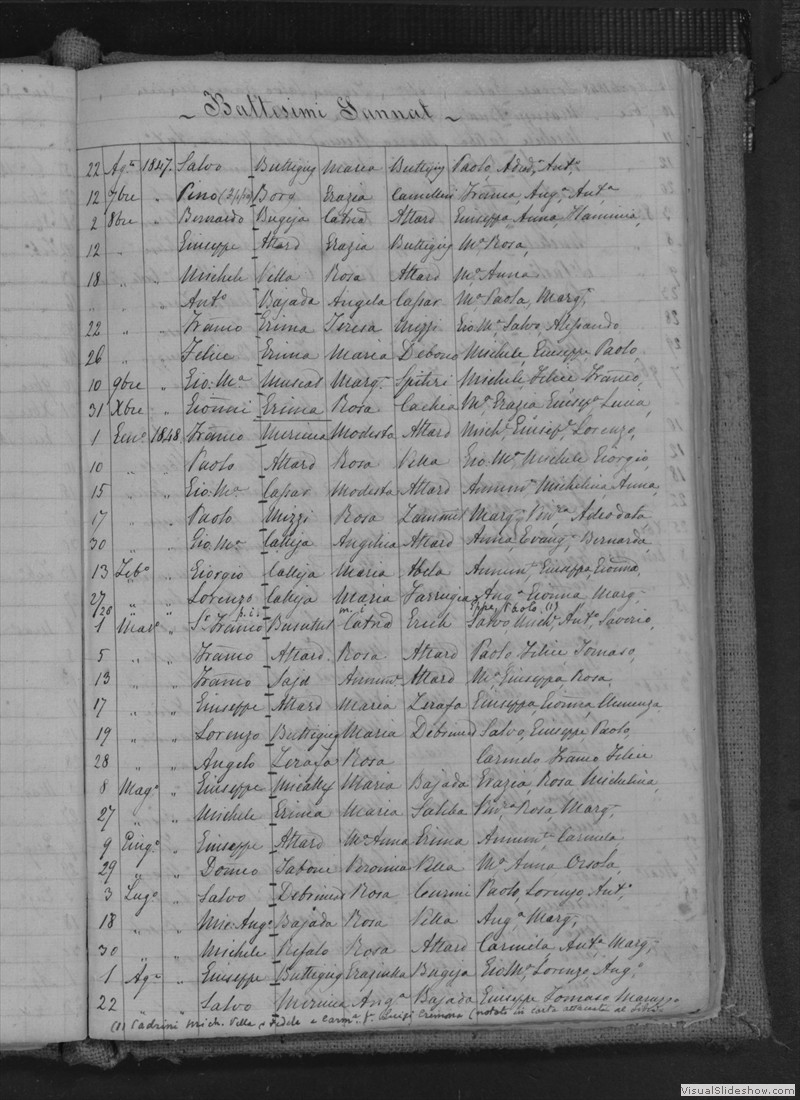 Battesimi Sannat
22 Agº 1847. Salvo Buttigieg Maria Buttigieg Paolo, Adeodª Antª,
12 7bre " Pino Borg Grazia Camilleri Franca Angª Antª
2 8bre " Bernardo Bugeja Catnª Attard Giuseppa, Anna, Flaminia,
12 " Giuseppe Attard Grazia Buttigieg Mª Rosa,
18 " Michele Vella Rosa Attard Mª Anna
" " " Antº Bajada Angela Capar Mª Paola, Margª
22 " " Franco Grima Teresa Mizzi Gio Mª Salvo, Alessandro
26 " " Felice Grima Maria Debono Michele, Giuseppe Paolo
10 9bre " Gio: Mª Muscat Margª Spiteri Michele, Felice Franco,
31 Xbre " Gionni Grima Rosa Cachia Mª Grazia Giusepª Lucia,
1 Genº 1848 Franco Mercieca Modesta Attard Michª Giusepª Lorenzo,
10 " " Paolo Attard Rosa Vella Gio Mª Michele Giorgio,
15 " " Gio: Mª Capar Modesta Attard Annunª Michelina Anna,
17 " " Paolo Mizzi Rosa Zammit Margª Vinª Adeodata
30 " " Gio: Mª Calleja Angelica Attard Anna, Evangª Bernarda
13 Febº " Giorgio Calleja Maria Abela Annunª Giuseppa, Gionna,
27 " " Lorenzo Calleja Maria Farrugia Angª Gionna Margª
/28
1 Marº " Sr Franco Busuttil Catnª Salvo, Michª Antº, Saverio,
5 " " Franco Attard Rosa Attard Paolo Felice Tomaso
13 " " Franco Said Annunª Attard Mª Giuseppa Rosa
17 " " Giuseppe Attard Maria Zerafa Giuseppa, Gionna, Clemenza
19 " " Lorenzo Buttigieg Maria Debrincat Salvo, Giuseppe Paolo,
28 " " Angelo Zerafa Rosa Carmelo Franco Felice
8 Magº " Giuseppe Micallef Maria Bajada Grazia, Rosa Michelina,
27 " " Michele Grima Maria Saliba Vinª Rosa, Margª
9 Giugº " Giuseppe Attard Mª Anna Grima Annunª Carmela
29 " " Domco Tabone Veronica Vella Mª Anna Orsola,
3 Lugº " Salvo Debrincat Rosa Curmi Paolo, Lorenzo, Antº,
18 " " Mic: Angº Bajada Rosa Vella Angª Margª,
30 " " Michele Refalo Rosa Attard Carmela, Antª Margª
1 Agº " Giuseppe Buttigieg Graziulla Bugeja Gio Mª, Lorenzo, Angº
22 " " Salvo Mercieca Angª Bajada Giuseppe Tomaso
(1) Padrini Mich. Vella e Luigi Cremona (notato in carta attaccata al libro
VisualSlideshow.com